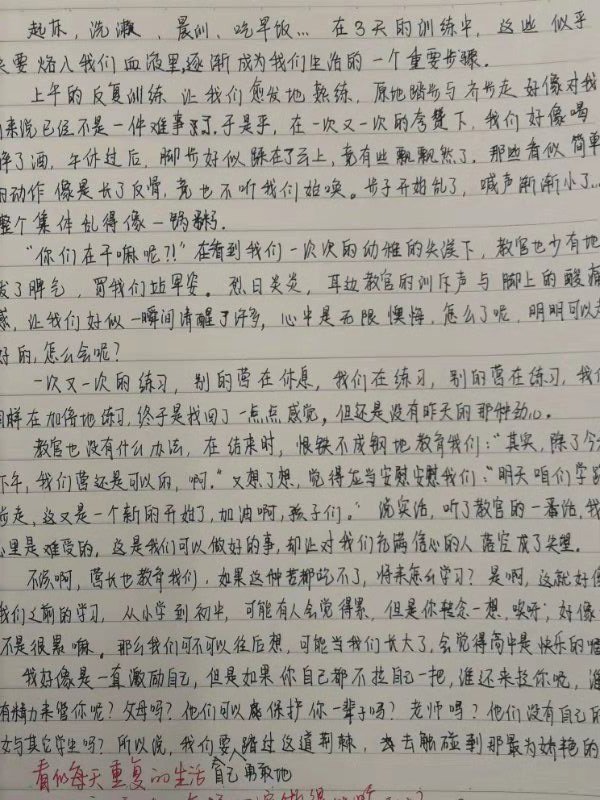 起床,洗漱、晨训、吃早饭… 在3天的训练中,这些似乎
要烙入我们血液里,逐渐成为我们生活的一个重要步骤.
上午的反复训练 让我们愈发地熟练,原地踏步与齐步走好像对我
来说已经不是一件难事了.于是乎,在一次又一次的夸赞下,我们好像喝
醉了酒,午休过后,脚步好似踩在了云上,竟有些飘飘然了,那些看似简单
动作像是长了反骨,竟也不听我们使唤。步子开始乱了,喊声渐渐小了…
整个集体乱得像一锅粥.
“你们在干嘛呢?!”在看到我们一次次的幼稚的失误下,教官也少有地
发了脾气,罚我们站军姿。烈日炎炎,耳边教官的训斥声与脚上的酸痛
感,让我们好似一瞬间清醒了许多,心中是无限懊悔,怎么了呢,明明可以
好的,怎么会呢?
一次又一次的练习,别的营在休息,我们在练习,别的营在练习,我们
同样在加倍地练习,终于是找回了一点点感觉,但还是没有昨天的那种劲心.
教官也没有什么办法,在结束时,恨铁不成钢地教育我们:“其实,除了今天
下午,我们营还是可以的,啊。”又想了想,觉得应当安慰安慰我们:“明天咱们学
步走,这又是一个新的开始了,加油啊,孩子们。”说实话,听了教官的一番话,我
心里是难受的,这是我们可以做好的事,却让对我们充满信心的人落空成了失望.
不成啊,营长也教育我们,如果这种苦都吃不了,将来怎么学习?是啊,这就好像
我们之前的学习,从小学到初中,可能有人会觉得累,但是你转念一想,唉呀,好像
不是很累嘛。那么我们可不可以往后想,可能当我们长大了,会觉得高中是快乐的
我好像是一直激励自己,但是如果你自己都不拉自己一把,谁还来拉你呢,谁
有精力来管你呢?父母吗?他们可以庇保护你一辈子吗?老师吗?他们没有自己的
女与其它学生吗?所以说,我们要踏过这道荆棘,去触碰到那最为娇艳的
看似每天重复的生活 自己勇敢地